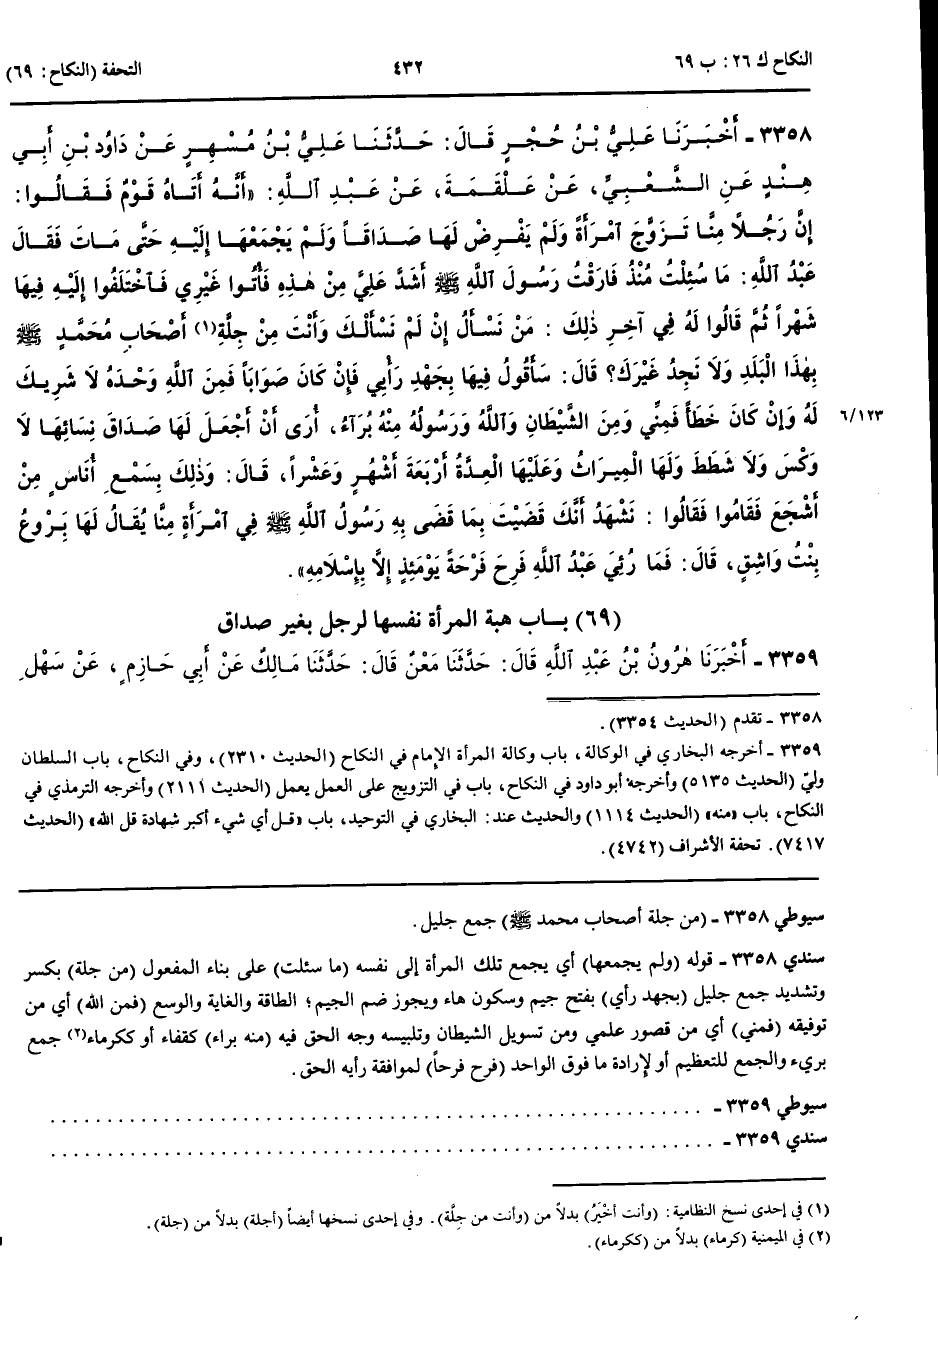 النكاح ك ٢٦: ب ٦٩
٤٣٢
التحفة (النكاح: ٦٩)
٣٣٥٨ - أَخْبَرَنَا عَلِيُّ بْنُ حُجْرٍ قَالَ: حَدَّثَنَا عَلِيُّ بْنُ مُسْهِرٍ عَنْ دَاوُدَ بْنِ أَبِي
هِنْدٍ عَنِ الشَّعْبِيِّ، عَنْ عَلْقَمَةَ، عَنْ عَبْدِ ٱللَّهِ: «أَنَّهُ أَتَاهُ قَوْمٌ فَقَالُوا:
إِنَّ رَجُلاً مِنَّا تَزَوَّجَ ٱمْرَأَةً وَلَمْ يَفْرِضْ لَهَا صَدَاقاً وَلَمْ يَجْمَعْهَا إِلَيْهِ حَتَّى مَاتَ فَقَالَ
عَبْدُ ٱللَّهِ: مَا سُئِلْتُ مُنْذُ فَارَقْتُ رَسُولَ ٱللَّهِ ﷺ أَشَدَّ عَلَيَّ مِنْ هٰذِهِ فَأْتُوا غَيْرِي فَٱخْتَلَفُوا إِلَيْهِ فِيهَا
شَهْراً ثُمَّ قَالُوا لَهُ فِي آخِرِ ذٰلِكَ : مَنْ نَسْأَلُ إِنْ لَمْ نَسْأَلْكَ وَأَنْتَ مِنْ جِلَّةِ(١) أَصْحَابِ مُحَمَّدٍ ﷺ
بِهٰذَا الْبَلَدِ وَلَا نَجِدُ غَيْرَكَ؟ قَالَ: سَأَقُولُ فِيهَا بِجَهْدِ رَأْيِي فَإِنْ كَانَ صَوَاباً فَمِنَ ٱللَّهِ وَحْدَهُ لَا شَرِيكَ
لَهُ وَإِنْ كَانَ خَطَأً فَمِنِّي وَمِنَ الشَّيْطَانِ وَٱللَّهُ وَرَسُولُهُ مِنْهُ بُرَآءُ، أُرَى أَنْ أَجْعَلَ لَهَا صَدَاقَ نِسَائِهَا لَا
٦/١٢٣
وَكْسَ وَلَا شَطَطَ وَلَهَا الْمِيرَاثُ وَعَلَيْهَا الْعِدَّةُ أَرْبَعَةَ أَشْهُرٍ وَعَشْراً، قَالَ: وَذٰلِكَ بِسَمْعِ أُنَاسٍ مِنْ
أَشْجَعَ فَقَامُوا فَقَالُوا : نَشْهَدُ أَنَّكَ قَضَيْتَ بِمَا قَضَى بِهِ رَسُولُ ٱللَّهِ ﷺ فِي ٱمْرَأَةٍ مِنَّا يُقَالُ لَهَا بَرْوَعُ
بِنْتُ وَاشِقٍ، قَالَ: فَمَا رُئِيَ عَبْدُ ٱللَّهِ فَرِحَ فَرْحَةً يَوْمَئِذٍ إِلَّا بِإِسْلَامِهِ».
(٦٩) بـاب هبة المرأة نفسها لرجل بغير صداق
٣٣٥٩ - أَخْبَرَنَا هٰرُونُ بْنُ عَبْدِ ٱللَّهِ قَالَ: حَدَّثَنَا مَعْنٌ قَالَ: حَدَّثَنَا مَالِكٌ عَنْ أَبِي حَازِمٍ ، عَنْ سَهْلِ
٣٣٥٨ - تقدم (الحديث ٣٣٥٤).
٣٣٥٩ - أخرجه البخاري في الوكالة، باب وكالة المرأة الإمام في النكاح (الحديث ٢٣١٠)، وفي النكاح، باب السلطان
وليّ (الحديث ٥١٣٥) وأخرجه أبو داود في النكاح، باب في التزويج على العمل يعمل (الحديث ٢١١١) وأخرجه الترمذي في
النكاح، باب «منه» (الحديث ١١١٤) والحديث عند: البخاري في التوحيد، باب «قـل أي شيء أكبر شهادة قل الله» (الحديث
٧٤١٧). تحفة الأشراف (٤٧٤٢).
سيوطي ٣٣٥٨ - (من جلة أصحاب محمد ﷺ) جمع جليل.
سندي ٣٣٥٨ - قوله (ولم يجمعها) أي يجمع تلك المرأة إلى نفسه (ما سئلت) على بناء المفعول (من جلة) بكسر
وتشديد جمع جليل (بجهد رأي) بفتح جيم وسكون هاء ويجوز ضم الجيم؛ الطاقة والغاية والوسع (فمن الله) أي من
توفيقه (فمني) أي من قصور علمي ومن تسويل الشيطان وتلبيسه وجه الحق فيه (منه براء) كقفاء أو ككرماء(٢) جمع
بريء والجمع للتعظيم أو لإرادة ما فوق الواحد (فرح فرحاً) لموافقة رأيه الحق.
سيوطي ٣٣٥٩ - . . . . . . . . . . . . . . . . . . . . . . . . . . . . . .
سندي ٣٣٥٩ - . . . . . . . . . . . . . . . . . . . . . . . . . . . . . .
(١) في إحدى نسخ النظامية: (وأنت أخْيَرُ) بدلاً من (وأنت من جِلَّة). وفي إحدى نسخها أيضاً (أجلة) بدلاً من (جلة).
(٢) في الميمنية (كرماء) بدلاً من (ككرماء).